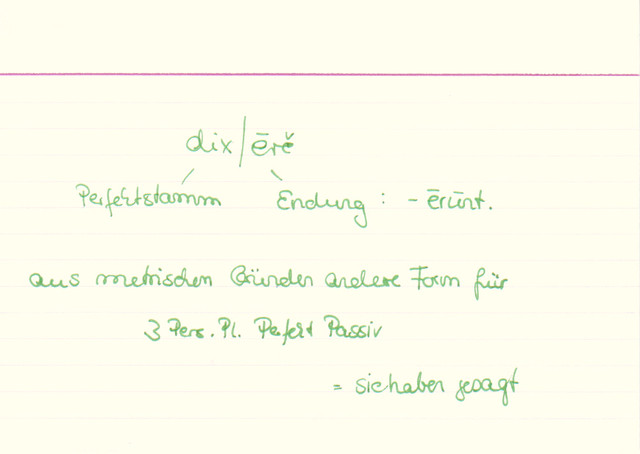 dix/ērĕ
Perfektstamm Endung : -ērūnt.
aus metrischen Gründen andere Form für
3 Pers. Pl. Perfekt Passiv
= sie haben gesagt